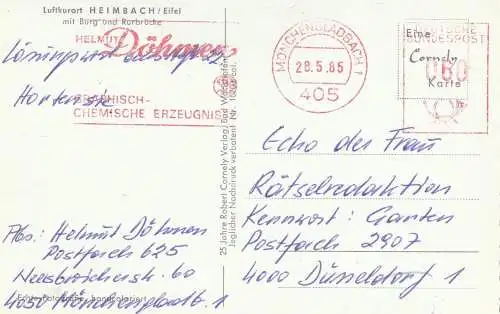 Luftkurort HEIMBACH/Eifel
mit Burg und Rurbrücke
HELMUT Döhmen
GRAPHISCH-
CHEMISCHE ERZEUGNISSE
MÖNCHENGLADBACH 1
28.5.85
405
DEUTSCHE
BUNDESPOST
060
Eine
Cornely
Karte
25 Jahre Robert Cornely Verlag, Bad
Jeglicher Nachdruck verboten! Nr.
Echo der Frau
Rätselredaktion
Kennwort: Garten
Postfach 2907
4000 Düsseldorf 1
Abs: Helmut Döhmen
Postfach 625
60
4050 Mönchengladbach 1